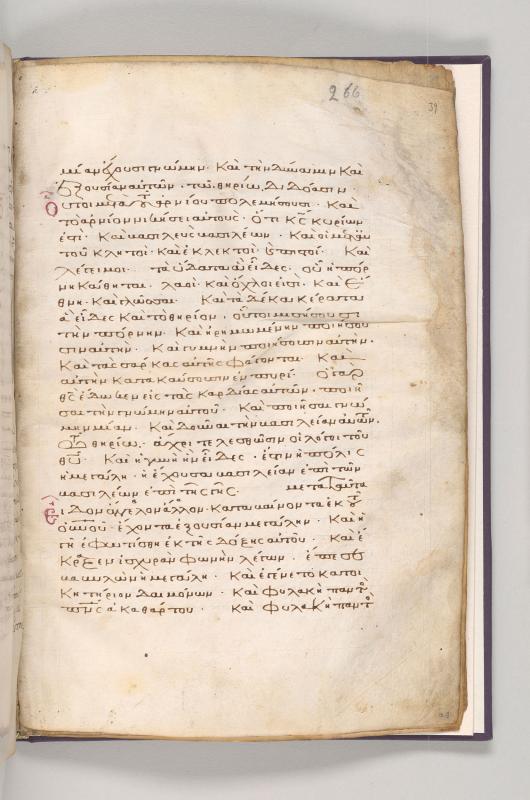 266
39
μίαν ἔχουσι γνώμην· Καὶ τὴν δύναμιν Καὶ
ἐξουσίαν αὐτῶν· τῷ θηρίῳ διδόασιν·
Οὗτοι μετὰ τοῦ ἀρνίου πολεμήσουσι· Καὶ
τὸ ἀρνίον νικήσει αὐτούς· ὅτι κς κυρίων
ἐστὶ· Καὶ βασιλεὺς βασιλέων· Καὶ οἱ μετ' αὐ
τοῦ κλητοὶ· Καὶ ἐκλεκτοὶ· πιστοί· Καὶ
λέγει μοι· τὰ ὕδατα ἃ εἶδες· οὗ ἡ πόρ
νη κάθηται· λαοὶ· Καὶ ὄχλοι εἰσὶ· Καὶ ἔ
θνη· Καὶ γλῶσσαι· Καὶ τὰ δέκα κέρατα
ἃ εἶδες Καὶ τὸ θηρίον· οὗτοι μισήσουσι
τὴν πόρνην· Καὶ ἠρημωμένην ποιήσου
σιν αὐτὴν· Καὶ γυμνὴν ποιήσουσιν αὐτήν·
Καὶ τὰς σάρκας αὐτῆς φάγονται· Καὶ
αὐτὴν κατακαύσουσιν ἐν πυρί· Ὁ γὰρ
θς ἔδωκεν εἰς τὰς καρδίας αὐτῶν· ποιῆ
σαι τὴν γνώμην αὐτοῦ· Καὶ ποιῆσαι γνώ
μην μίαν· Καὶ δοῦναι τὴν βασιλείαν αὐτῶν
τῷ θηρίῳ· ἄχρι τελεσθῶσιν οἱ λόγοι τοῦ
θυ· Καὶ ἡ γυνὴ ἣν εἶδες· ἔστιν ἡ πόλις
ἡ μεγάλη· ἡ ἔχουσα βασιλείαν ἐπὶ τῶν
βασιλέων ἐπὶ τῆς γῆς· μετὰ ταῦτα
εἶδον ἄγγελον ἄλλον· καταβαίνοντα ἐκ τοῦ
οὐνοῦ· ἔχοντα ἐξουσίαν μεγάλην· Καὶ ἡ
γῆ ἐφωτίσθη ἐκ τῆς δόξης αὐτοῦ· Καὶ ἐ
κραξεν ἰσχυρᾷ φωνῇ λέγων· ἔπεσε
βαβυλὼν ἡ μεγάλη· Καὶ ἐγένετο κατοι
κητήριον δαιμόνων· Καὶ φυλακὴ παντὸς
πνς ἀκαθάρτου· Καὶ φυλακὴ παντὸς